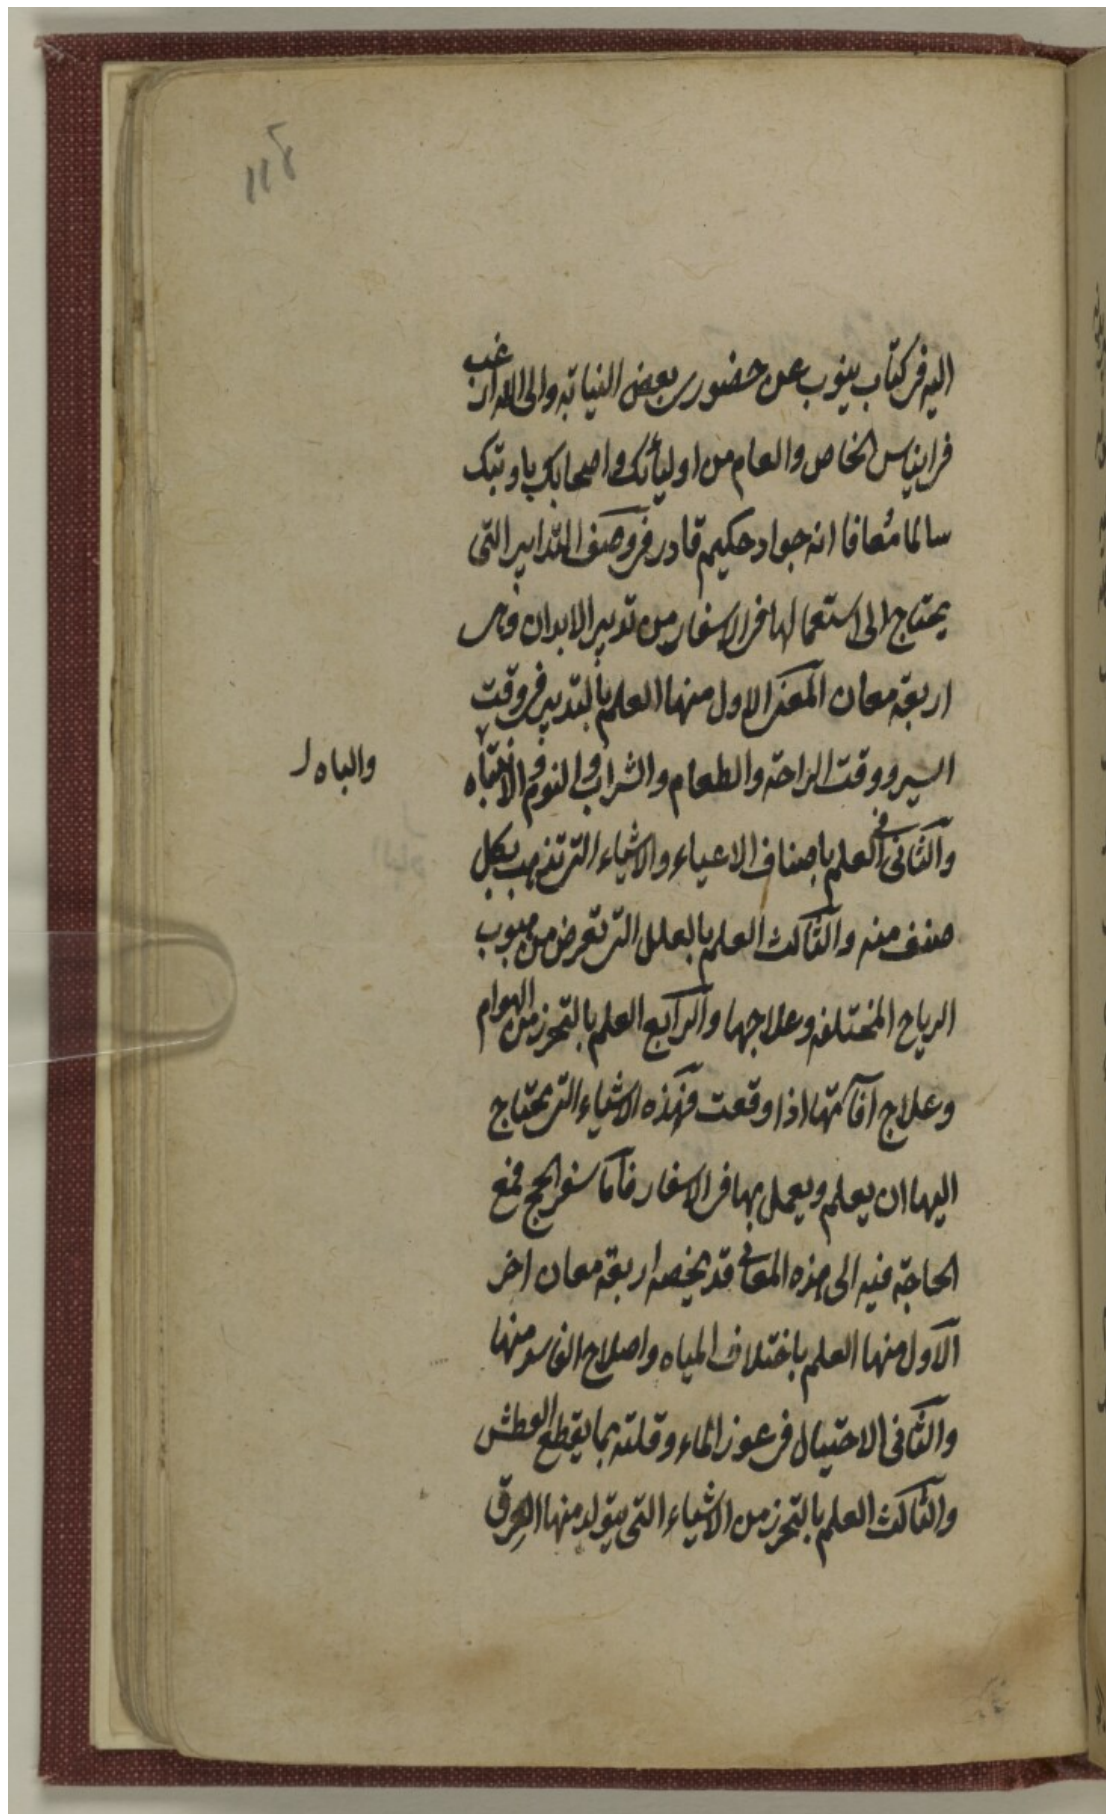 ١١٤
اليه في كتاب ينوب عن حضوري بعض النيابة والى الله ارغب
في ايناس الخاص والعام من اوليائك واصحابك باوبتك
سالما مُعافا انه جواد حكيم قادر في وصف التدابير التي
يحتاج الى استعمالها في الاسفار من تدبير الابدان وهي
اربعة معان المعنى الاول منها العلم بالتدبير في وقت
السير ووقت الراحة والطعام والشراب والنوم والانتباه
والباه
والثاني في العلم باصناف الاعياء والاشياء التي تذهب بكل
صنف منه والثالث العلم بالعلل التي تعرض من هبوب
الرياح المختلفه وعلاجها والرابع العلم بالتحرز من الهوام
وعلاج آفاتها اذا وقعت فهذه الاشياء التي يحتاج
اليها ان يعلم ويعمل بها في الاسفار فاما سفر الحج فمع
الحاجة فيه الى هذه المعاني قد يخصه اربعة معان اخر
الاول منها العلم باختلاف المياه واصلاح الفاسد منها
والثاني الاحتيال في عوز الماء وقلته بما يقطع العطش
والثالث العلم بالتحرز من الاشياء التي يتولد منها العِرق